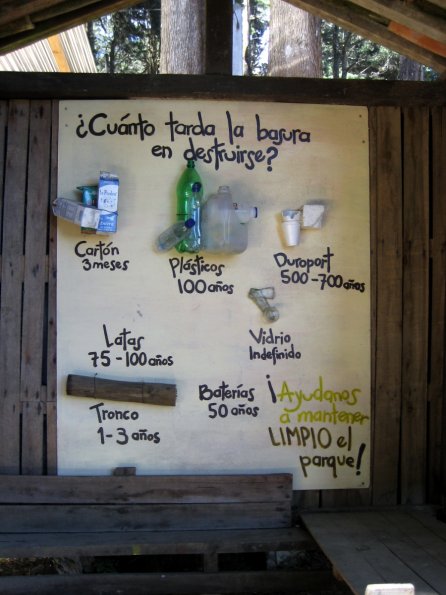 ¿Cuánto tarda la basura
en destruirse?
Cartón
3 meses
Plásticos
100 años
Duroport
500-700 años
Vidrio
Indefinido
Latas
75-100 años
Tronco
1-3 años
Baterías
50 años
¡Ayudanos
a mantener
LIMPIO el
parque!